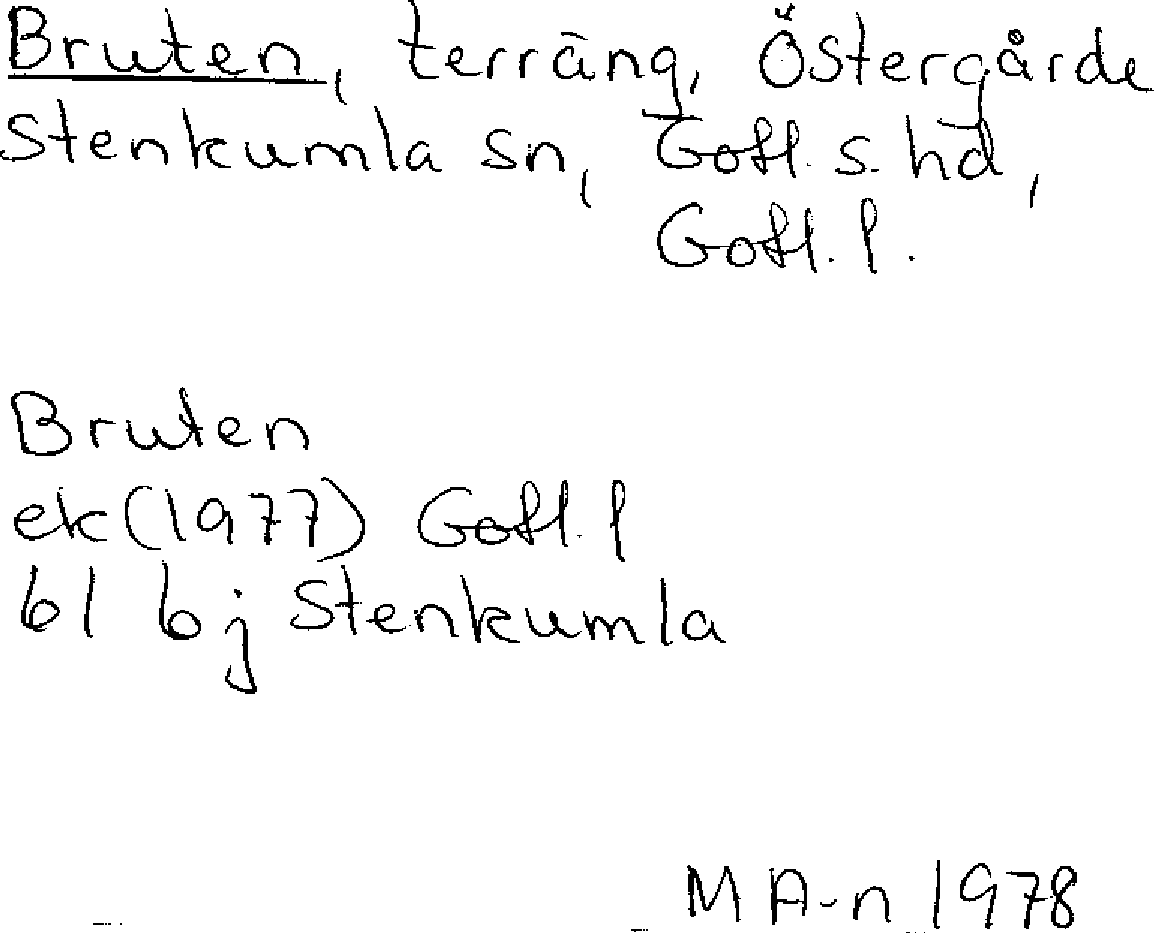 Bruten, terräng, Östergårde
Stenkumla sn, Gotl. s. hd,
Gotl. l.
Bruten
ek (1977) Gotl. l
bl bj Stenkumla
M A-n 1978